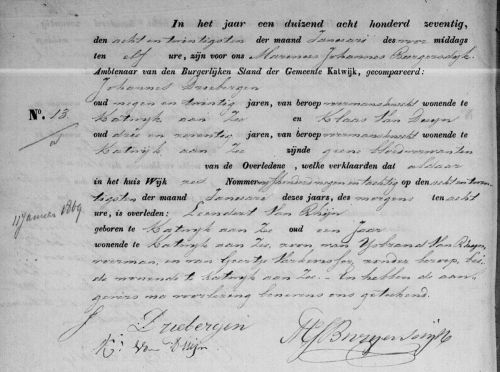 In het jaar een duizend acht honderd zeventig,
den acht en twintigsten der maand Januari des voor middags
ten elf ure, zijn voor ons Marinus Johannes Burgersdijk
Ambtenaar van den Burgerlijken Stand der Gemeente Katwijk, gecompareerd:
Johannes Driebergen
oud negen en twintig jaren, van beroep veermansknecht wonende te
No. 13. Katwijk aan Zee en Klaas van Duijn
oud drie en zeventig jaren, van beroep veermansknecht wonende te
Katwijk aan Zee zijnde geene bloedverwanten
van de Overledene, welke verklaarden dat aldaar
in het huis Wijk Nommer honderd negen en tachtig op den acht en twin
11 Januari 1869
tigsten der maand Januari dezes jaars, des morgens ten acht
ure, is overleden: Leendert van Rhijn
geboren te Katwijk aan Zee oud een Jaar
wonende te Katwijk aan Zee, zoon van IJsbrand van Rhijn,
veerman, en van Geertje zonder beroep, bei
de wonende te Katwijk aan Zee. En hebben de aan
gevers na voorlezing benevens ons geteekend.
J Driebergen
K: Van Duijn MJBurgersdijk